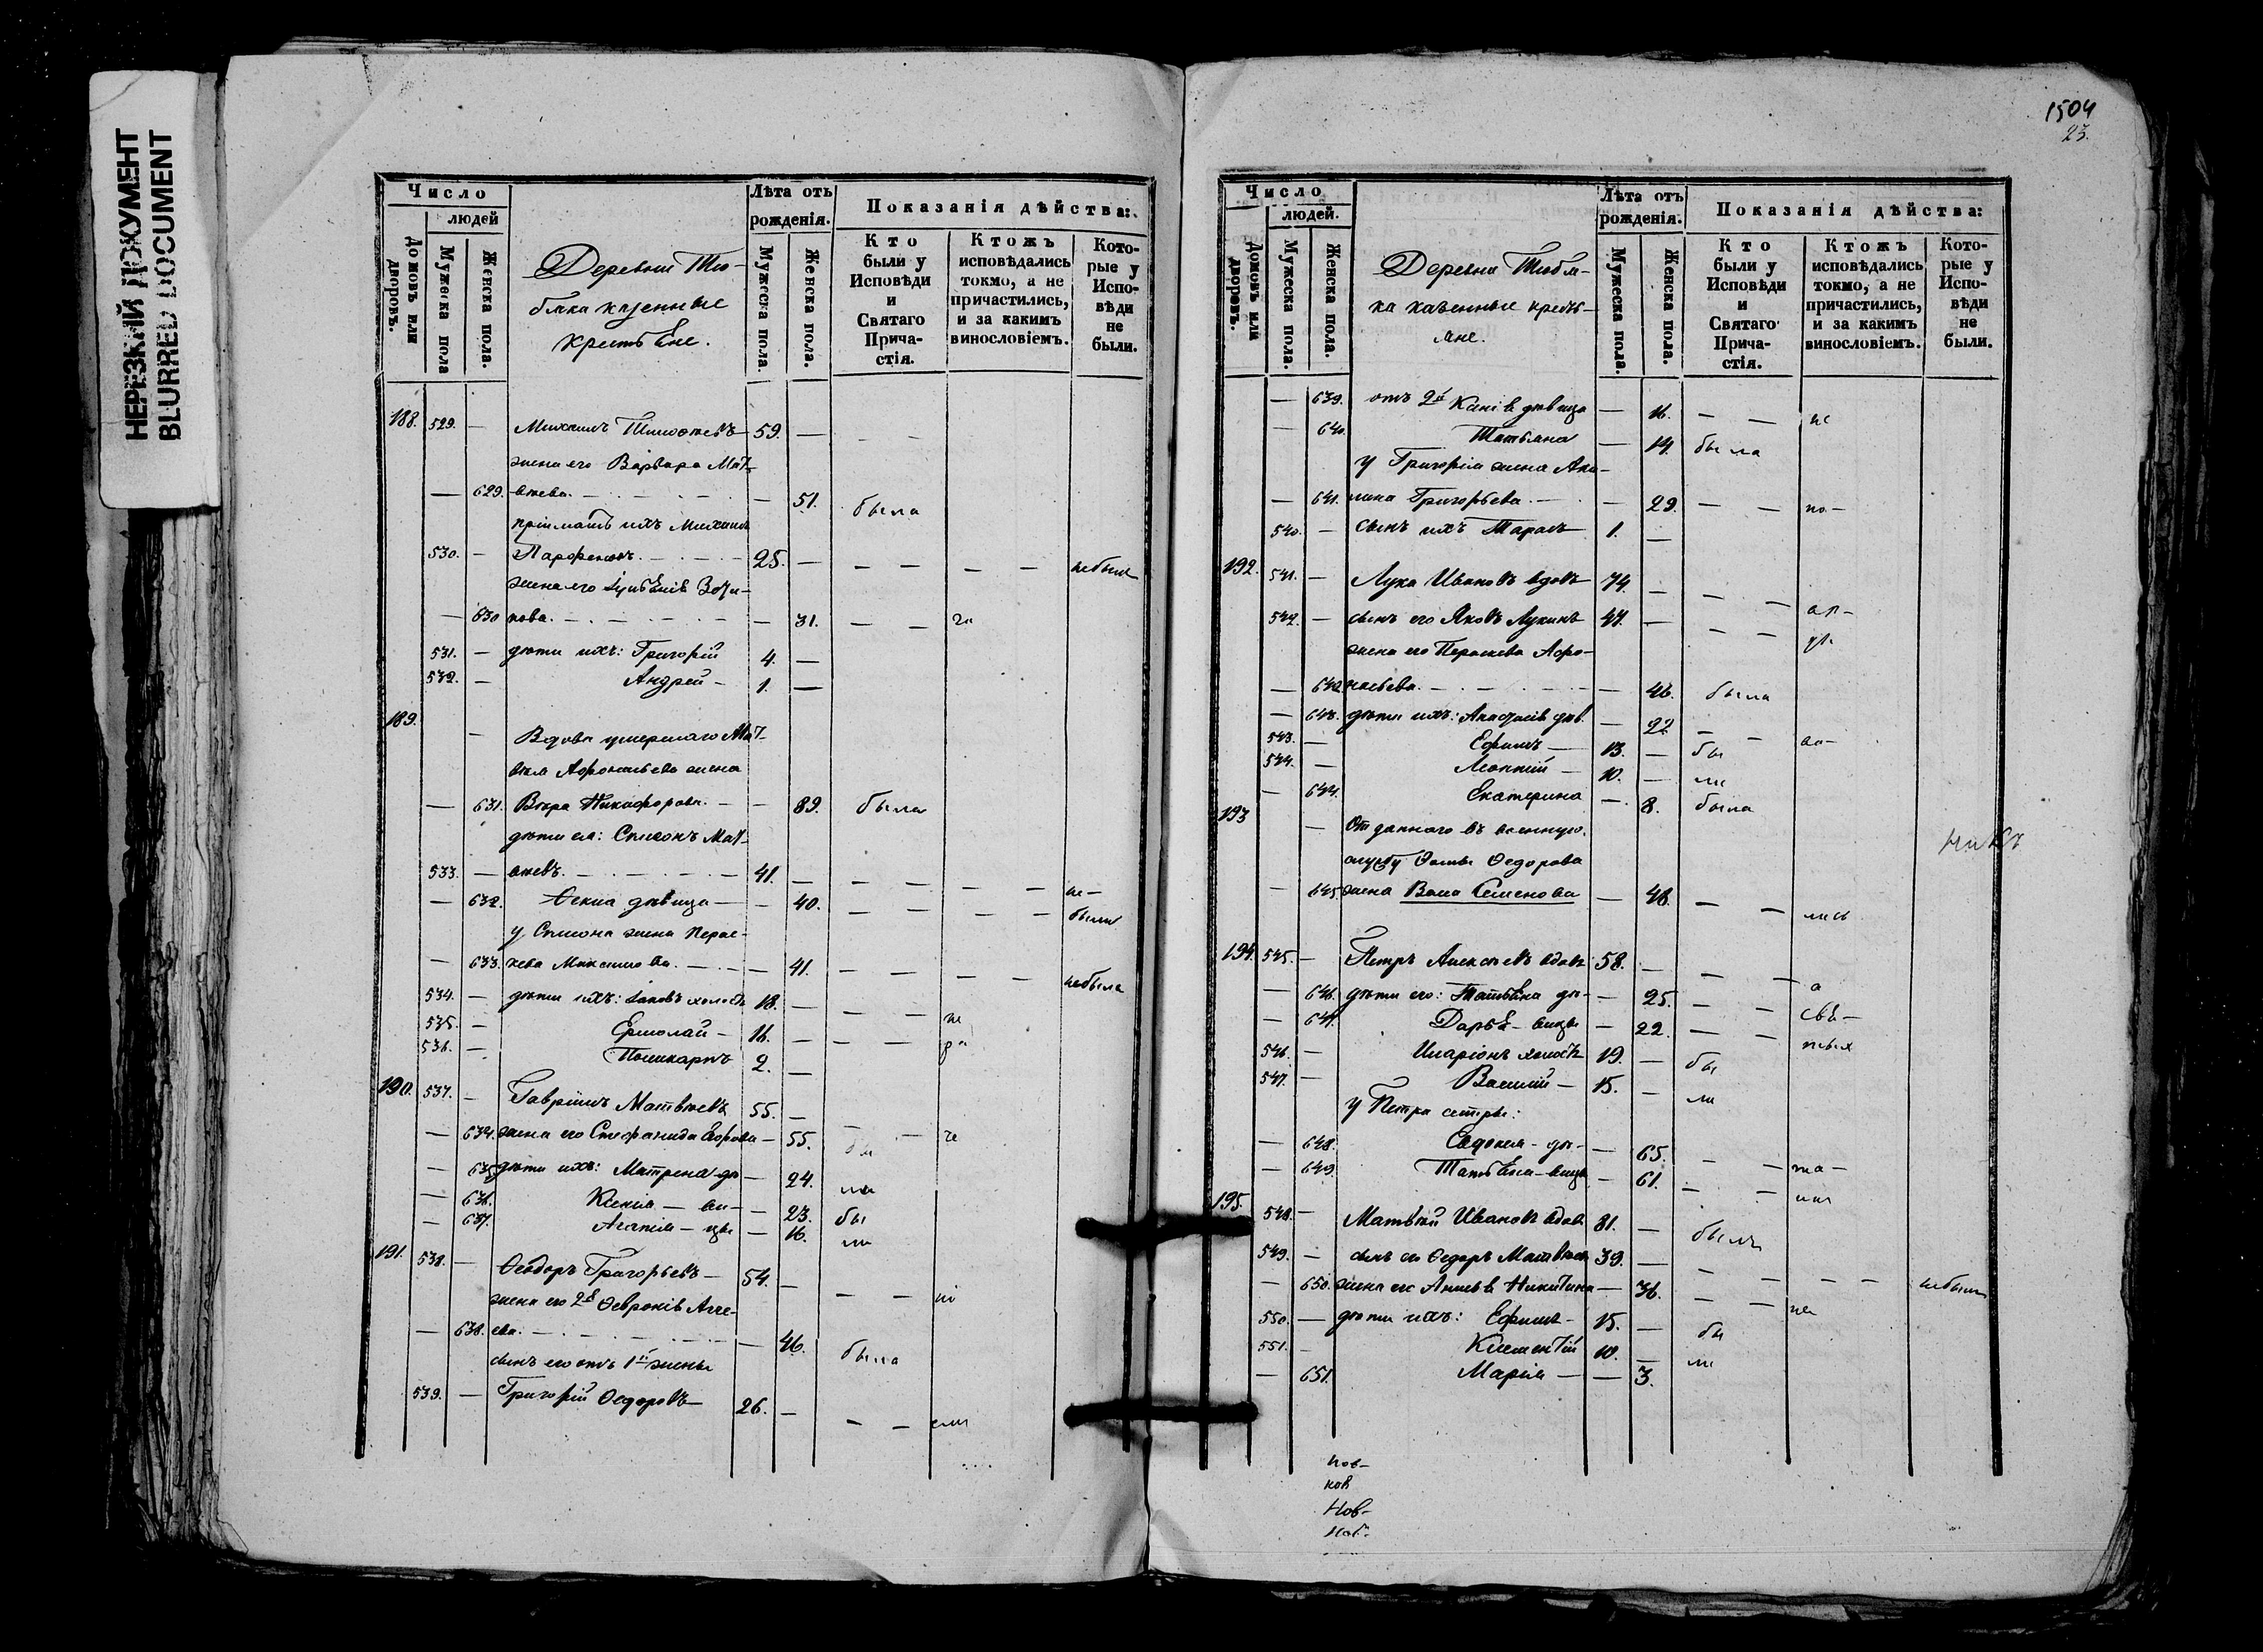 НЕРЕЗКИЙ ДОКУМЕНТ
BLURRED DOCUMENT
Число
людей
Домовъ или дворовъ.
Мужеска пола
Женска пола.
Деревни Тю-
бяка казенные
крестьяне.
Лѣта отъ рожденія.
Мужеска пола.
Женска пола.
Показанія дѣйства:
Кто были у Исповѣди и Святаго Прича-стія.
Ктожъ исповѣдались токмо, а не причастились, и за какимъ винословіемъ.
Кото-рые у Испо-вѣди не были.
188. 529. — Михаилъ Тимоѳеевъ 59. —
жена его Варвара Мат-
— 629. вѣева. — 51. была
пріимашъ ихъ Михаилъ
530. — Парфеновъ. 25. — — — — — небылъ
жена его
— 630 нова. — 31. — —
531. — дѣти ихъ: Григорій 4. —
532. — Андрей — 1. —
189. — Вдова умершаго Мат-
вѣя Афонасьева жена
— 631. Вѣра Никифорова. — — 89. была
дѣти ея: Симеонъ Мат-
533. — вѣевъ. 41. — — — — — не —
— 632. Ѳекла дѣвица — — 40. — — — — были
у Симеона жена Парас-
— 633. кева Максимова. — 41. — — — — небыла
534. — дѣти ихъ: Іаковъ холостъ 18. — — — не
535. — Ермолай — 16. — — — ра
536. — Поликарпъ 2. —
190. 537. — Гавріилъ Матвѣевъ 55. — — — че
— 634. жена его Стефанида — 55. бы
— 635 дѣти ихъ: Матрена дѣ — 24. ла
— 636. Ксенія — ви- — 23. бы
— 637. Агапія — цы — 16. ли
191. 538. — Ѳеодоръ Григорьевъ — 54. — — —
жена его 2я Ѳевронія Агге-
— 638. ева. — 46. была
сынъ его отъ 1й жены
539. — Григорій Ѳедоровъ — 26. — — —
1504
23.
Число
людей.
Домовъ или дворовъ.
Мужеска пола
Женска пола.
Деревни Тюбя-
ка казенные кресть-
яне.
Лѣта отъ рожденія.
Мужеска пола.
Женска пола.
Показанія дѣйства:
Кто были у Исповѣди и Святаго Прича-стія.
Ктожъ исповѣдались токмо, а не причастились, и за какимъ винословіемъ.
Кото-рые у Испо-вѣди не были.
— 639. отъ 2й Ксенія дѣвица — 16. — —
— 640. Татьяна — 14. была
у Григорія жена Аку-
— 641. лина Григорьева. — 29. — — по-
540. — сынъ ихъ Тарасъ 1. —
192. 541. — Лука Ивановъ вдовъ 74. — — —
542. — сынъ его Яковъ Лукинъ 47. — — —
жена его Парасkева Афо-
— 642 насьева. — 46. была
— 643. дѣти ихъ: Анастасія дѣв. — 22. — —
543. — Ефимъ — 13. — бы
544. — 10. — ли
— 644. Екатерина — 8. была
193 — Отданного въ военную
службу Ѳомы Ѳедорова
— 645. жена Васса Семенова — 48. — — лись
194. 545. — Петръ Алексѣевъ вдовъ 58. — — — а
— 646. дѣти его: Татьяна дѣ- — 25. — — свѣ-
— 647. Дарья — вицы — 22. — —
546. — Иларіонъ холостъ 19. — бы
547. — Василій — 15. — ли
у Петра сестры:
— 648. Евдокия — дѣ- — 65. — — та-
— 649. Татьяна — вицы — 61. — —
195. 548. — Матвѣй Ивановъ вдовъ 81. — былъ
549. — сынъ его Ѳедоръ Матвѣевъ 39. — — — — — небылъ
— 650. жена его Анисья Никитина — 36. — —
550. — дѣти ихъ: Ефимъ — 15. — бы
551. — Климентій 10. — ли
— 651. Марія — — 3.
нов-
ков
Нов-